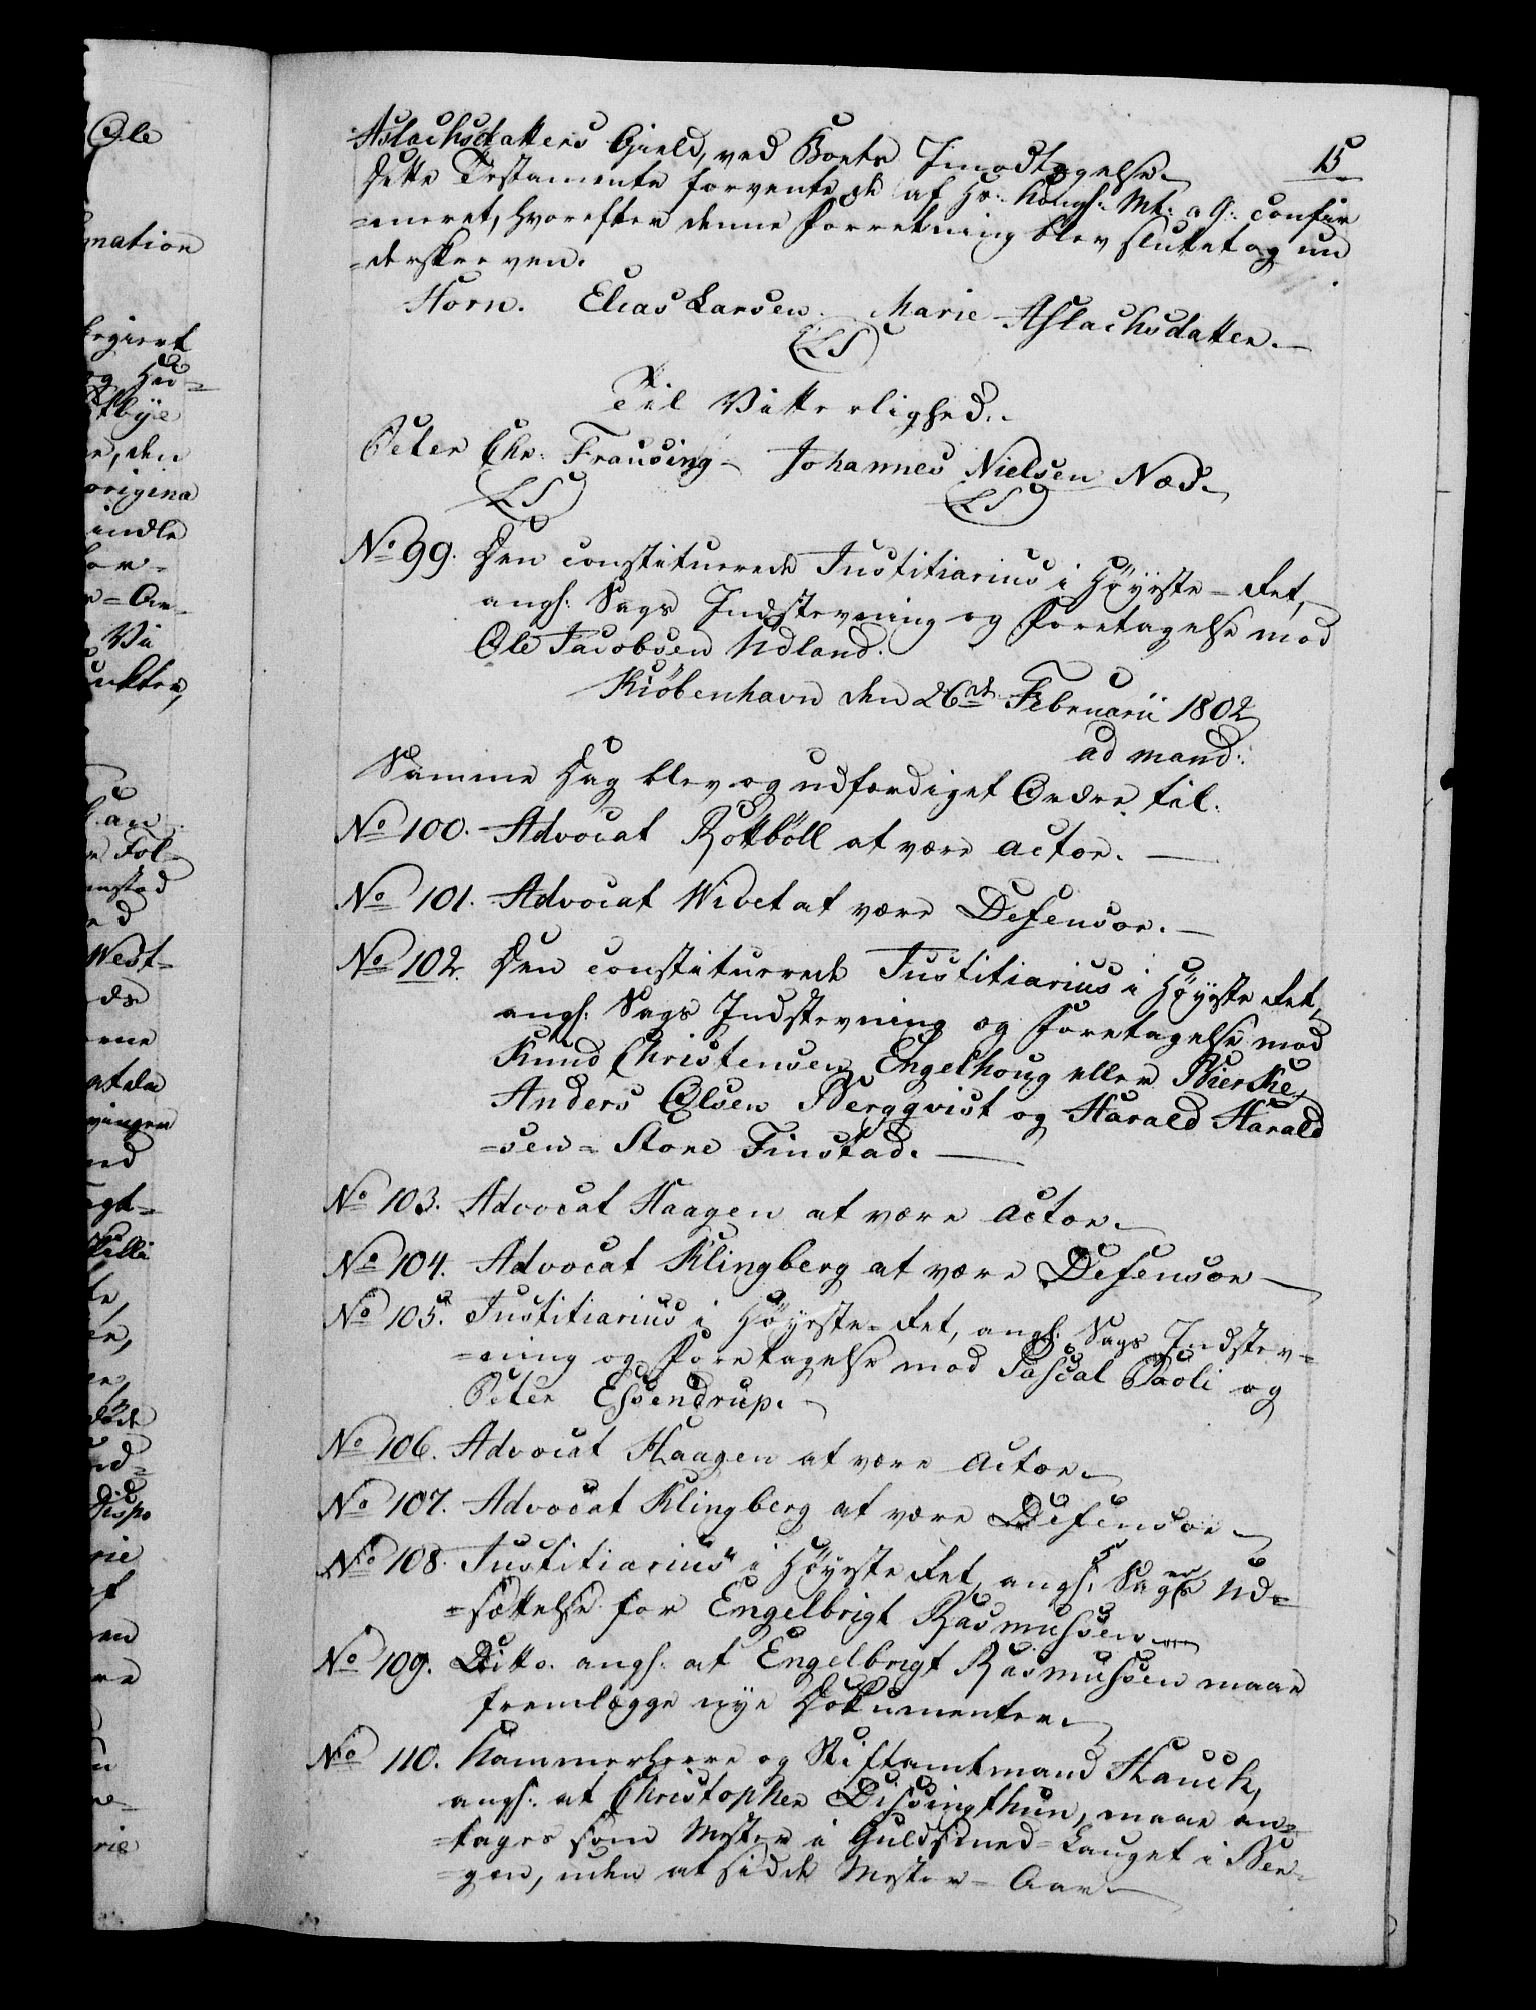 15
Aslachsdatters Gield, ved Boets Imodtagelse.
Dette Testamente forventede af Hs: Kongl: Mt: a g: confir
=meret, hvorefter denne Forretning blev sluttet og un
=derskreven.
Horn. Elias Larsen. Marie Aslachsdatter.
(LS)
Til Vitterlighed.
Peter Chr: Frausing. Johannes Nielsen Næs.
(LS) (LS)
No 99. Den constituerede Justitiarius i Höyeste-Ret,
angl: Sags Indstevning og Foretagelse mod
Ole Jacobsen Udland.
Kiöbenhavn den 26de Februarii 1802
ad mand:
Samme Dag blev og udfærdiget Ordre til.
No 100. Advocat Rottböll at være Actor.
No 101. Advocat Wivet at være Defensor.
No 102. Den constituerede Justitiarius i Höyeste Ret,
angl: Sags Indstevning og Foretagelse mod
Knud Christensen Engelhoug eller Bierke,
Anders Olsen Bergqvist og Harald Harald
=sen=Store Finstad.
No 103. Advocat Haagen at være Actor.
No 104. Advocat Klingberg at være Defensor
No 105. Justitiarius i Höyeste-Ret, angl: Sags Indstev=
=ning og Foretagelse mod Pascal Paoli og
Peter Essendrup.
No 106. Advocat Haagen at være Actor.
No 107. Advocat Klingberg at være Defensor
No 108. Justitiarius i Höyeste Ret, angl: Sagers Ud=
=sættelse for Engelbrigt Rasmussen
No 109. Ditto. angl: at Engelbrigt Rasmussen maae
fremlægge nye Dokumenter.
No 110. Kammerherre og Stiftamtmand Hauch,
angl: at Christopher Dissingthun, maae an=
=tages som Mester i Guldsmed=Lauget i Ber
=gen, uden at sidde Mester-Aar.